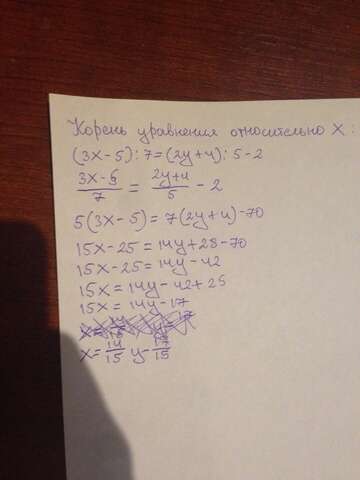 Корень уравнения относительно x:
(3x-5):7=(2y+4):5-2
3x-5/7 = 2y+4/5 - 2
5(3x-5)=7(2y+4)-70
15x-25=14y+28-70
15x-25=14y-42
15x=14y-42+25
15x=14y-17
x=14/15 y-17/15